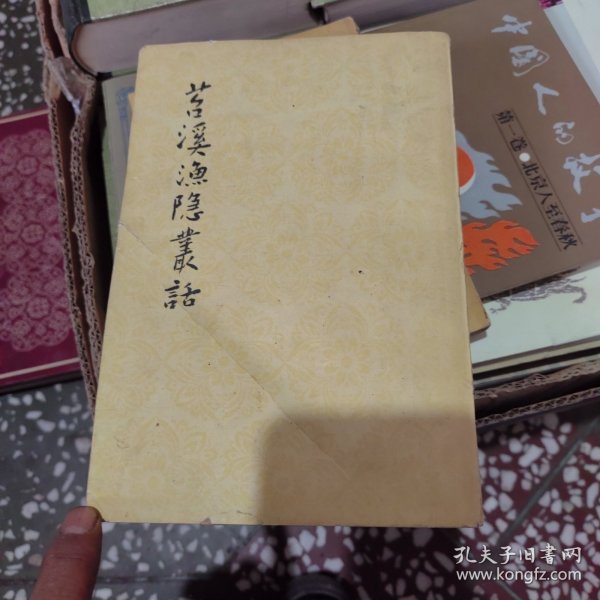 苕溪漁隐叢話
中國人的故事
第一卷·北京人至春秋
孔夫子旧书网
www.kongfz.com